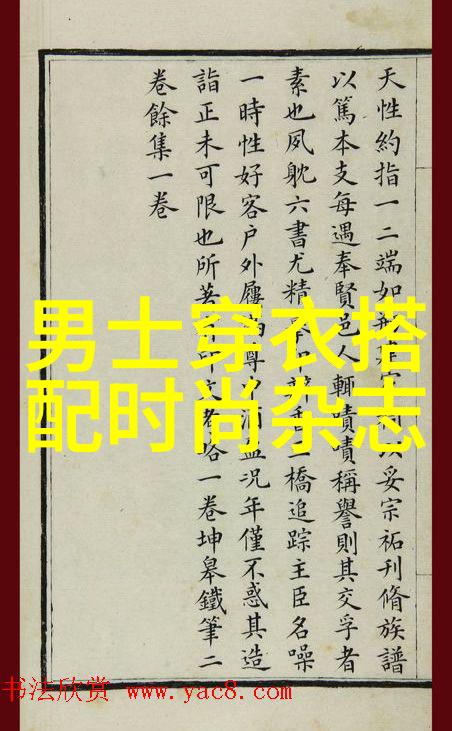 天性約指一二端如妥宗祏刊脩族譜
以篤本支每遇奉賢邑人輒嘖嘖稱譽則其交孚者
素也夙躭六書尤精橋追踪主臣名噪
一時性好客户外屨況年僅不惑其造
詣正未可限也所著一卷坤皋鐵筆二
卷餘集一卷
男士穿衣搭
配时尚杂志
书法欣赏 www.yac8.com